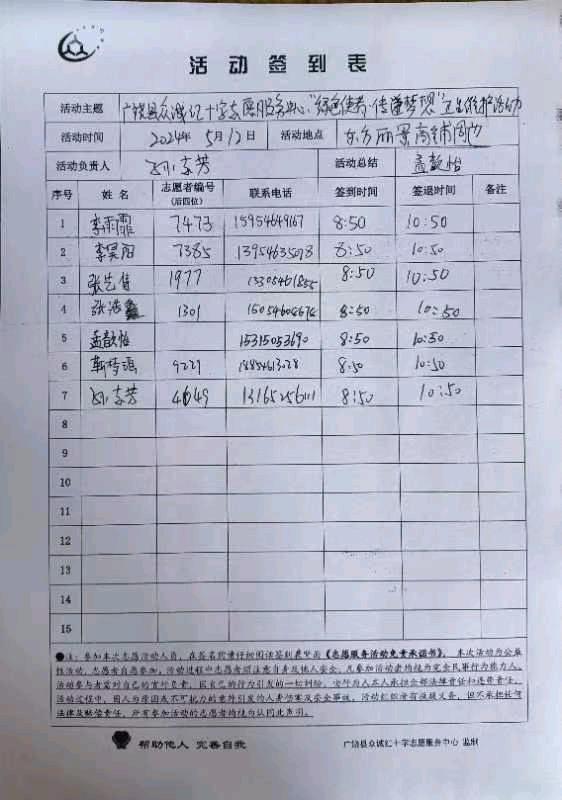 活动签到表
活动主题 广饶县众诚红十字志愿服务中心“绿色使者·传递梦想”卫生维护活动
活动时间 2024年 5月12日 活动地点 东方丽景商铺周边
活动负责人 孙李芳 活动总结 孟歆怡
序号 姓名 志愿者编号 (后四位) 联系电话 签到时间 签退时间 备注
1 李雨霏 7473 15954649167 8:50 10:50
2 李昊阳 7385 13954635078 8:50 10:50
3 张艺 1977 13305461855 8:50 10:50
4 张浩 1301 15054604676 8:50 10:50
5 孟歆怡 15315053690 8:50 10:50
6 靳梦瑶 9229 18854613028 8:50 10:50
7 孙李芳 4649 13165256111 8:50 10:50
8
9
10
11
12
13
14
15
●注：参加本次志愿活动人员，在签名前请仔细阅读签到表里面《志愿服务活动免责承诺书》。本次活动为公益
性活动，志愿者自愿参加。活动过程中志愿者须注意自身及他人安全，凡参加活动者均视为完全民事行为能力人。
活动参与者需对自己的言行负责，因自己的行为引发的一切纠纷，由行为人本人承担全部法律责任和连带责任。
活动过程中，因人为原因或不可抗力的意外引发的人身伤害及安全事故，活动组织者有救援义务，但不承担任何
法律及赔偿责任，所有参加活动的志愿者均视为认同此声明。
帮助他人 完善自我 广饶县众诚红十字志愿服务中心 监制